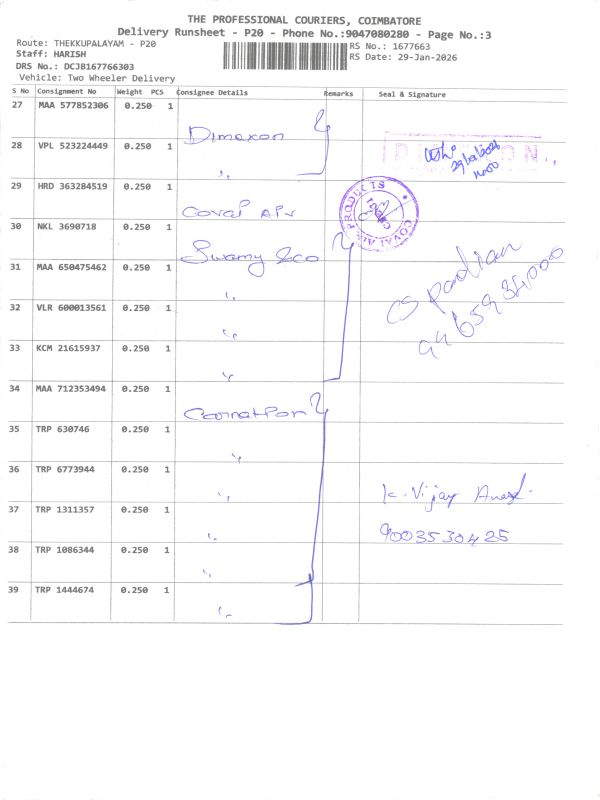 THE PROFESSIONAL COURIERS, COIMBATORE
Delivery Runsheet - P20 - Phone No.:9047080280 - Page No.:3
Route: THEKKUPALAYAM - P20
Staff: HARISH
DRS No.: DCJB167766303
Vehicle: Two Wheeler Delivery
RS No.: 1677663
RS Date: 29-Jan-2026
S No Consignment No Weight PCS Consignee Details Remarks Seal & Signature
27 MAA 577852306 0.250 1 Dimexon
28 VPL 523224449 0.250 1 〃
29 HRD 363284519 0.250 1
COVAI AIR PRODUCTS
30 NKL 3690718 0.250 1 Swamy &co
31 MAA 650475462 0.250 1 〃
32 VLR 600013561 0.250 1 〃
33 KCM 21615937 0.250 1 〃
34 MAA 712353494 0.250 1
35 TRP 630746 0.250 1 〃
36 TRP 6773944 0.250 1 〃 K. Vijay
37 TRP 1311357 0.250 1 〃 9003530425
38 TRP 1086344 0.250 1 〃
39 TRP 1444674 0.250 1 〃